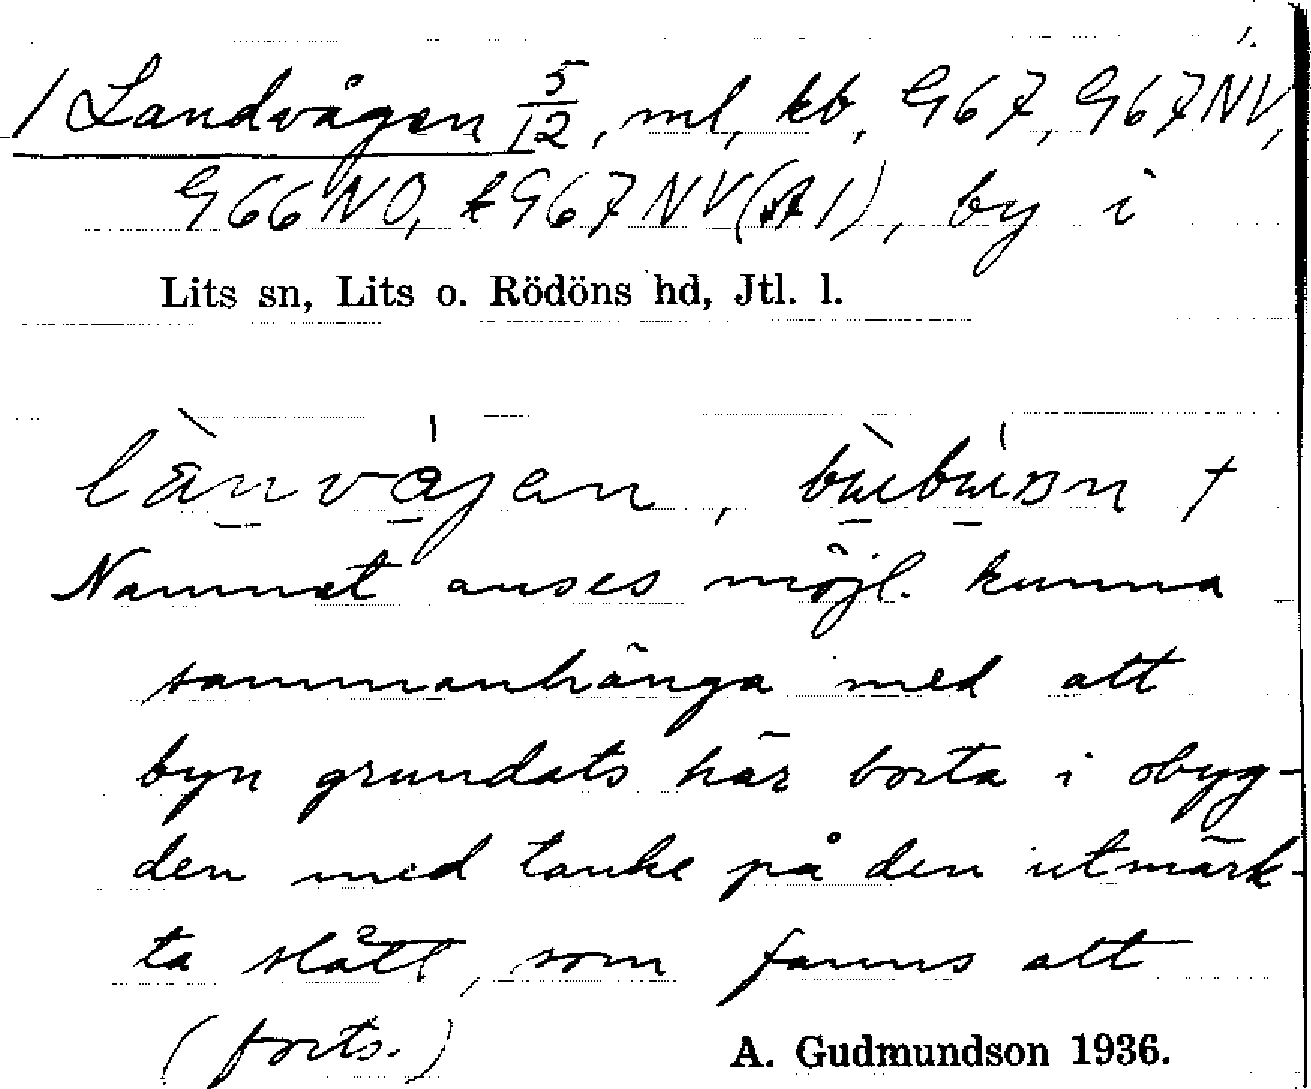 1.
1 Landvågen 5/12, ml, kb, 967, 967NV,
966NO, 967NV(A1), by i
Lits sn, Lits o. Rödöns hd, Jtl. l.
Namnet anses möjl. kunna
sammanhänga med att
byn grundats här borta i obyg-
den med tanke på den utmärk-
ta slått, som fanns att
(forts.)
A. Gudmundson 1936.